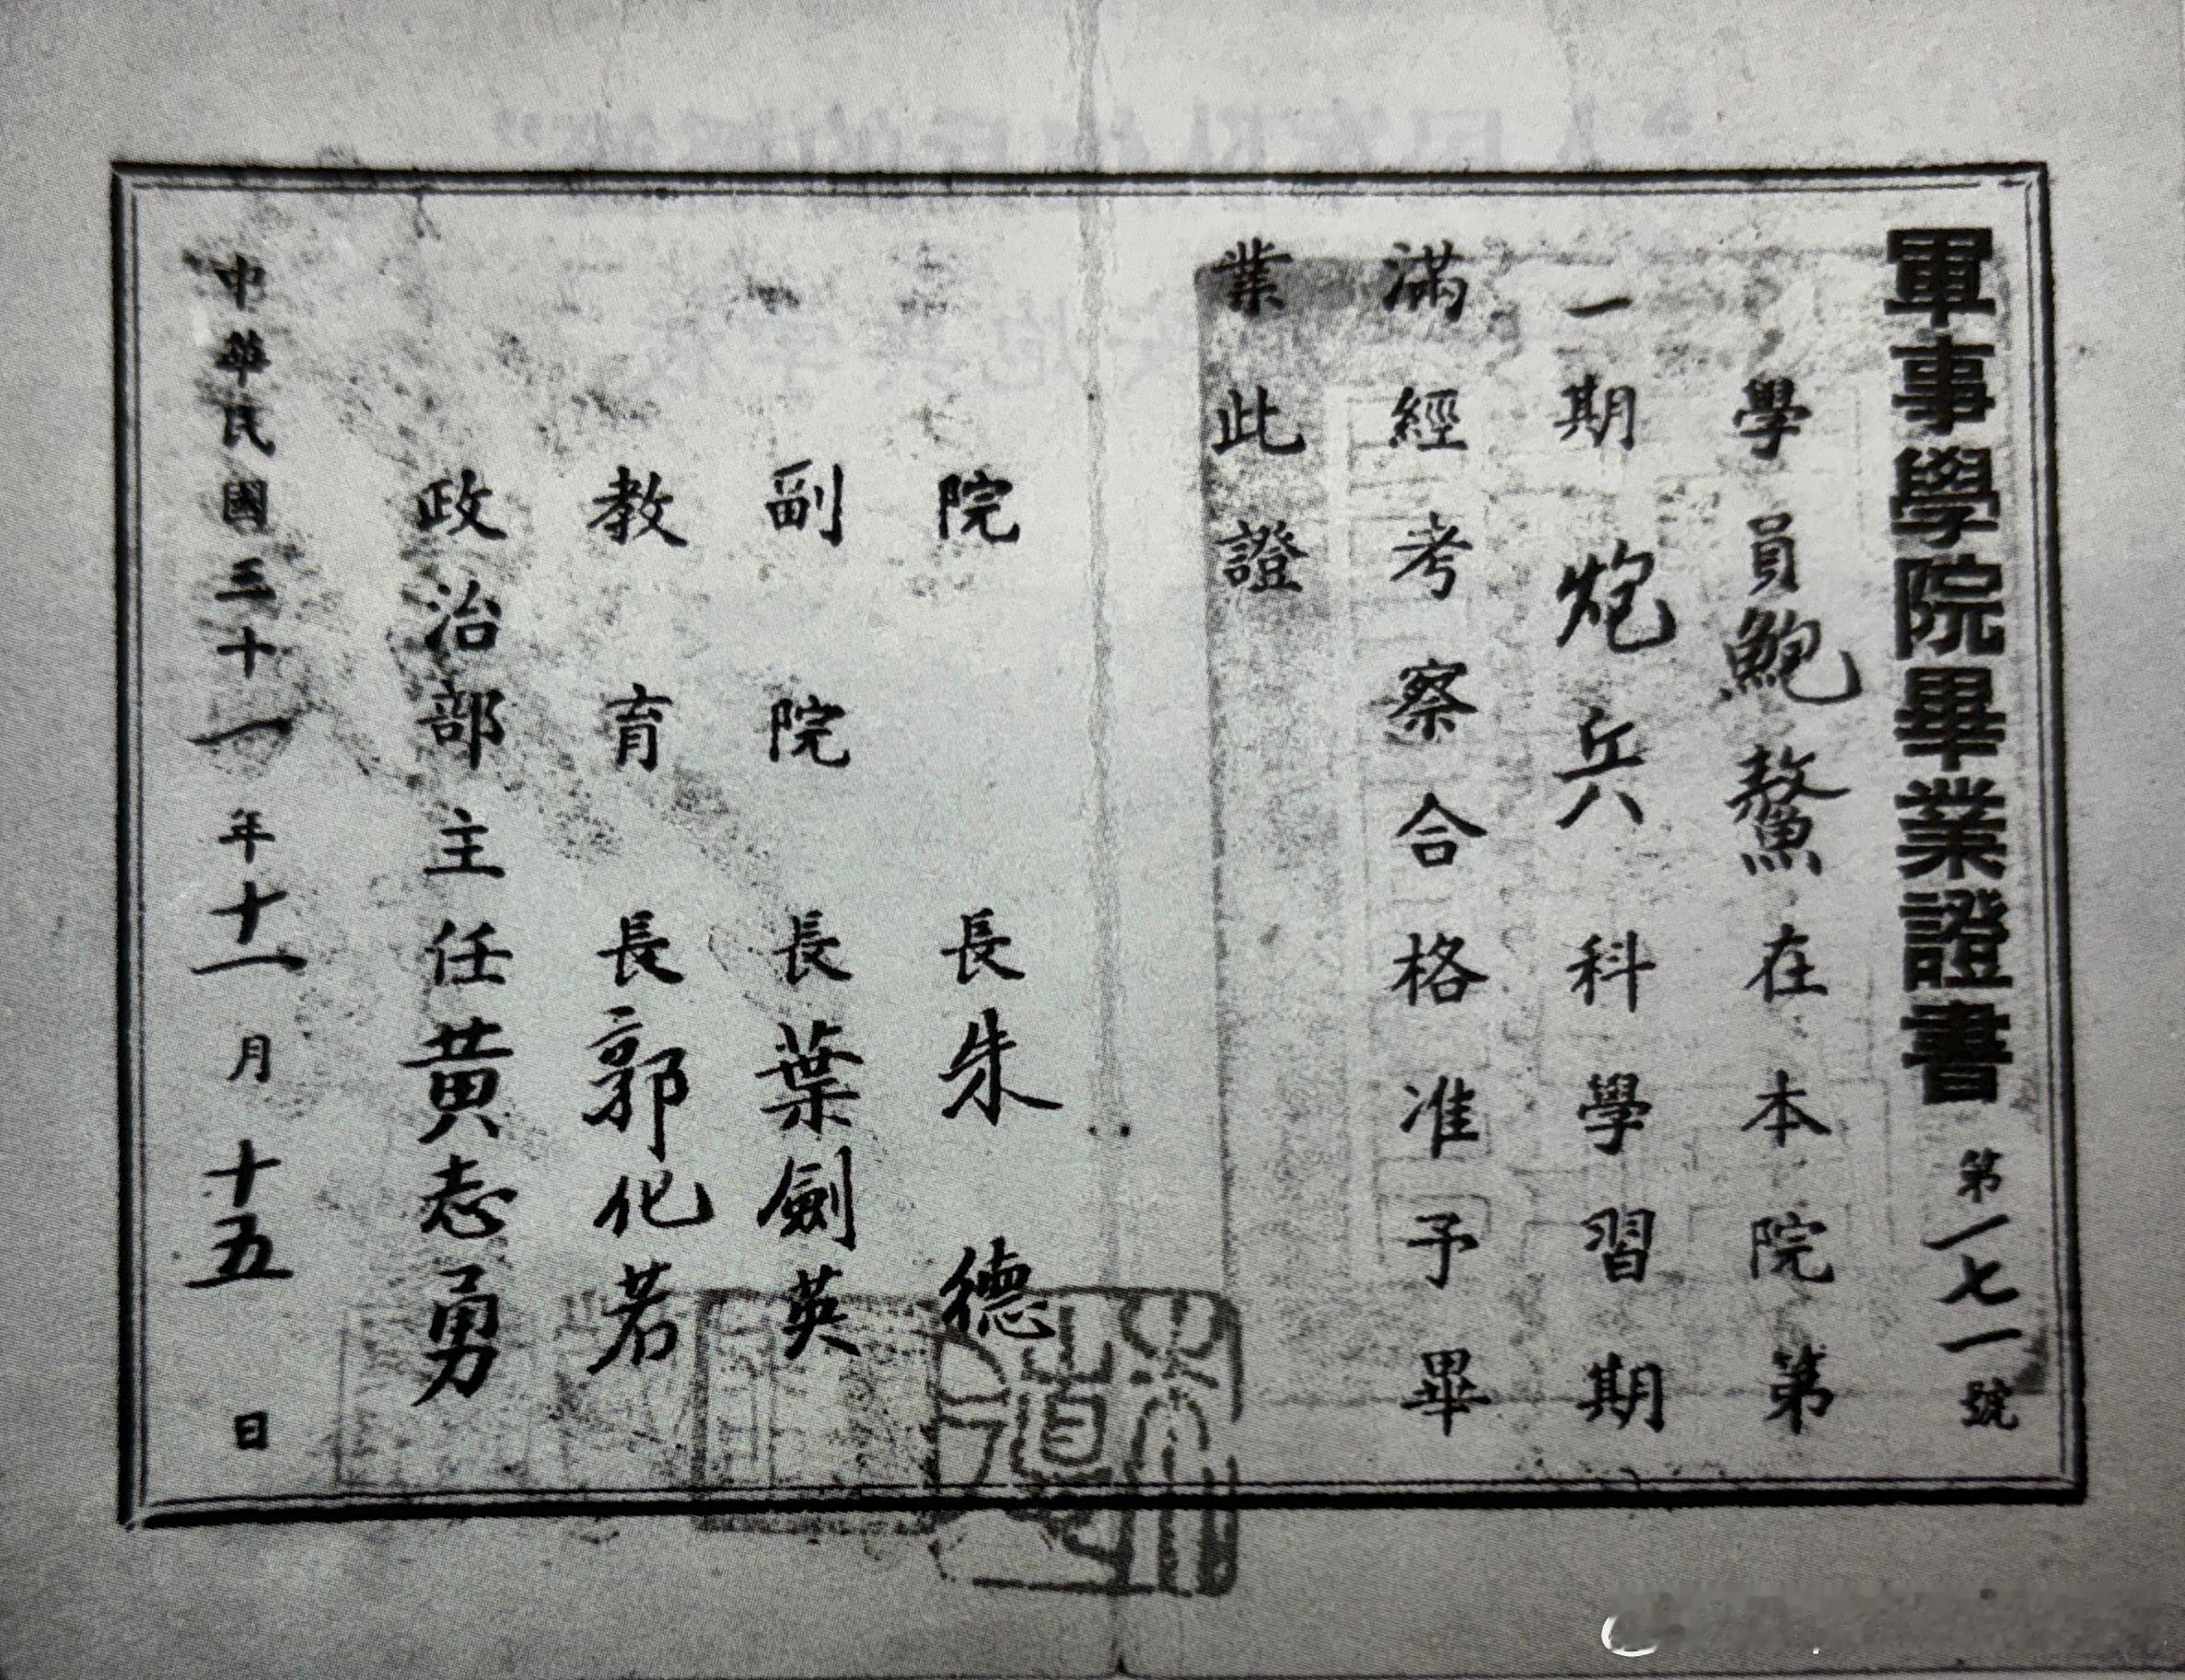 軍事學院畢業證書 第一七一號
學員鮑鰲在本院第
一期炮兵科學習期
滿經考察合格准予畢
業此證
院長朱德
副院長葉劍英
教育長郭化若
政治部主任黃志勇
中華民國三十一年十一月十五日